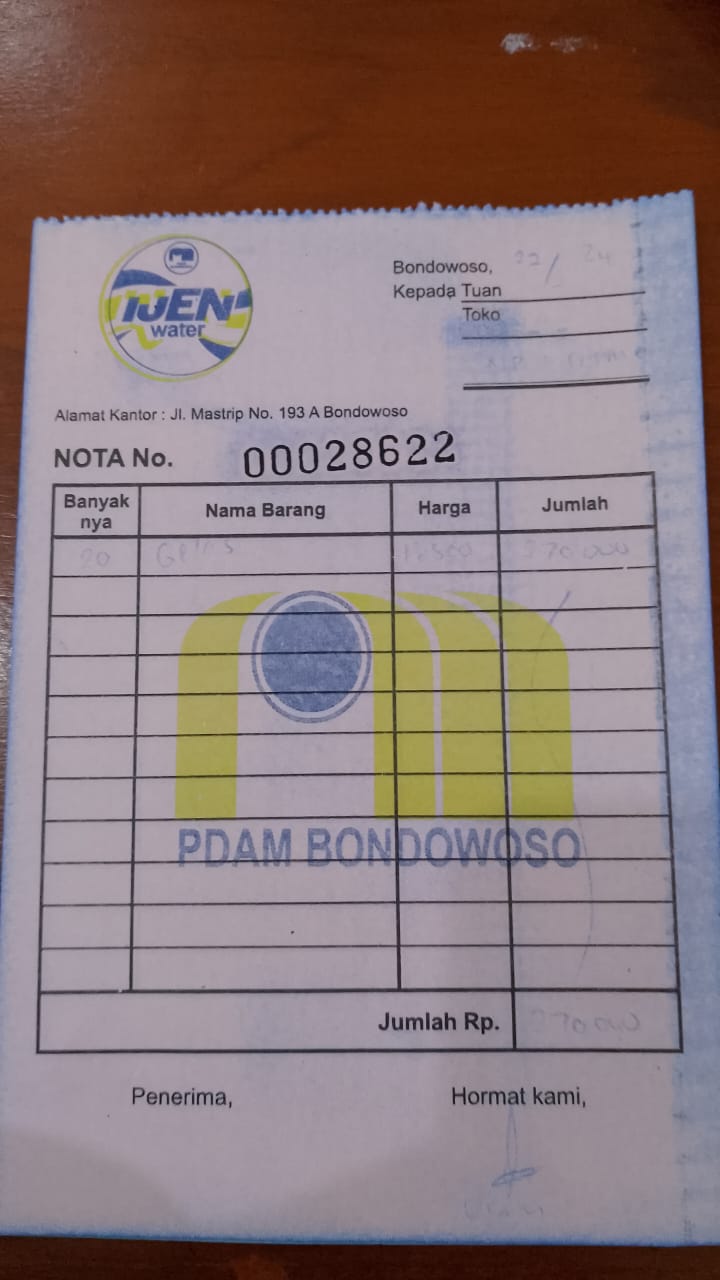 IJEN
water
Bondowoso, 22/ 24
Kepada Tuan
Toko
Alamat Kantor : Jl. Mastrip No. 193 A Bondowoso
NOTA No. 00028622
Banyak nya Nama Barang Harga Jumlah
20 270 000
PDAM BONDOWOSO
Jumlah Rp. 270 000
Penerima, Hormat kami,